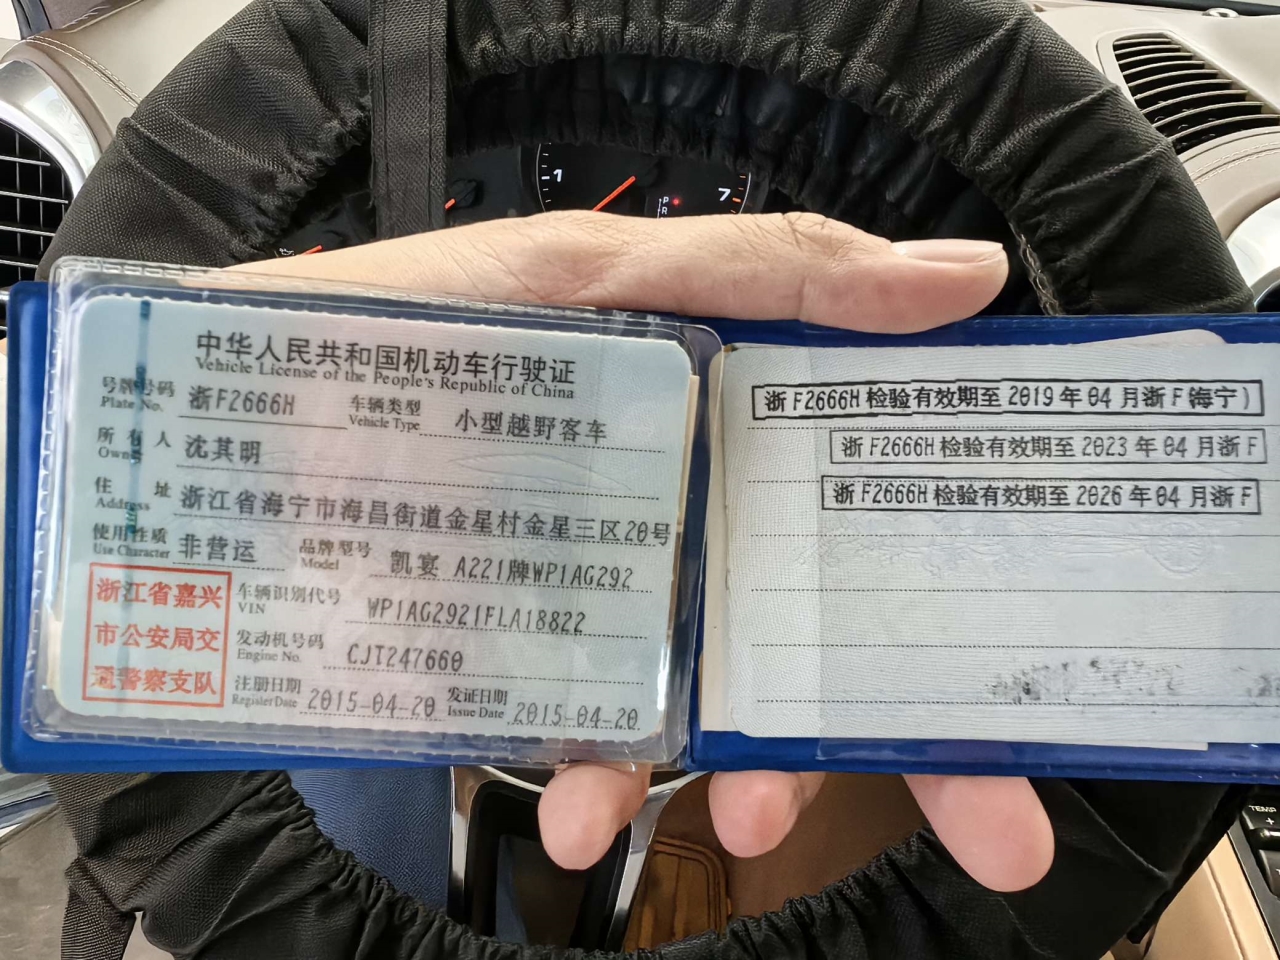 中华人民共和国机动车行驶证
Vehicle License of the People's Republic of China
号牌号码 浙F2666H 车辆类型 小型越野客车
Plate No. Vehicle Type
所有人 沈其明
Owner
住址 浙江省海宁市海昌街道金星村金星三区20号
Address
使用性质 非营运 品牌型号 凯宴 A221牌WP1AG292
Use Character Model
浙江省嘉兴
市公安局交
通警察支队
车辆识别代号 WP1AG2921FLA18822
VIN
发动机号码 CJT247660
Engine No.
注册日期 2015-04-20 发证日期 2015-04-20
Register Date Issue Date
浙F2666H检验有效期至2019年04月浙F(海宁)
浙F2666H检验有效期至2023年04月浙F
浙F2666H检验有效期至2026年04月浙F
1
7
P
R
TEMP
+